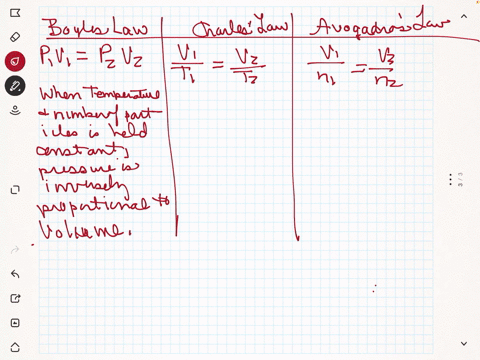 Boyles Law
Charles' Law
Avogadro's Law
P1V1 = P2V2
V1/T1 = V2/T2
V1/n1 = V2/n2
When Temperature
& number of part
icles is held
constant,
pressure is
inversely
proportional to
Volume.
3 / 3